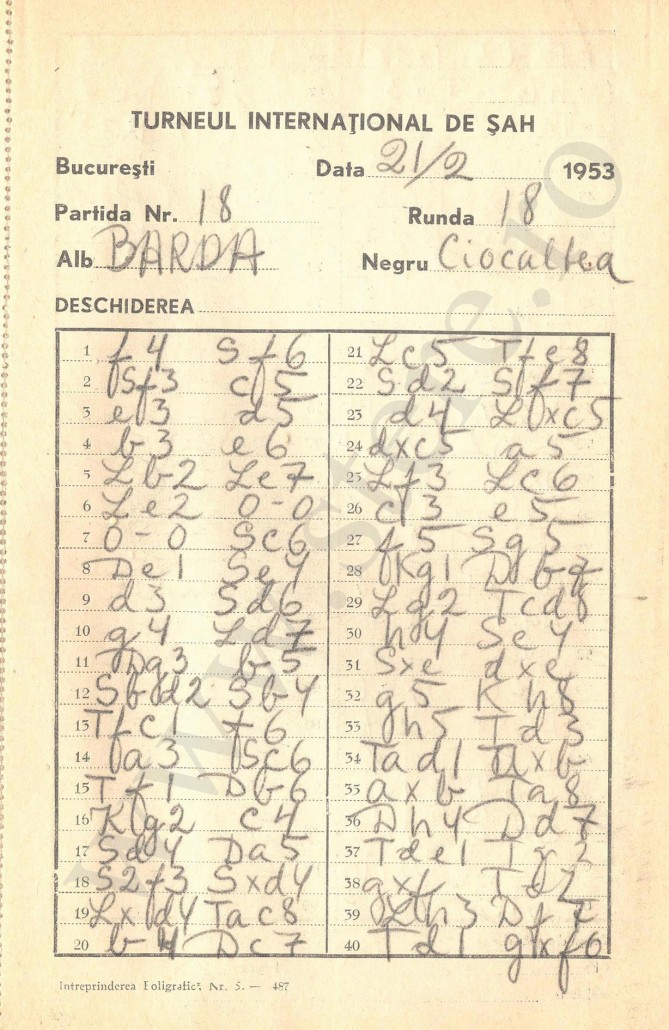 TURNEUL INTERNAŢIONAL DE ŞAH
Bucureşti Data 21/2 1953
Partida Nr. 18 Runda 18
Alb BARDA Negru Ciocaltea
DESCHIDEREA
1 f4 Sf6
2 Sf3 c5
3 e3 d5
4 b3 e6
5 Lb2 Le7
6 Le2 0-0
7 0-0 Sc6
8 De1 Se4
9 d3 Sd6
10 g4 Ld7
11 Dg3 b5
12 Sbd2 Sb4
13 Tfc1 f6
14 a3 Sc6
15 Tf1 Db6
16 Kg2 c4
17 Sd4 Da5
18 S2f3 Sxd4
19 Lxd4 Tac8
20 b4 Dc7
21 Lc5 Tfe8
22 Sd2 Sf7
23 d4 Lxc5
24 dxc5 a5
25 Lf3 Lc6
26 c3 e5
27 f5 Sg5
28 Kg1 Db7
29 Lg2 Tcd8
30 h4 Se4
31 Sxe dxe
32 g5 Kh8
33 h5 Td3
34 Tad1 axb
35 axb Ta8
36 Dh4 Dd7
37 Tde1
38 gxf
39 Lh3 Df7
40 Td1 gxf6
Intreprinderea Poligrafică Nr. 5. — 487
www.stere.ro